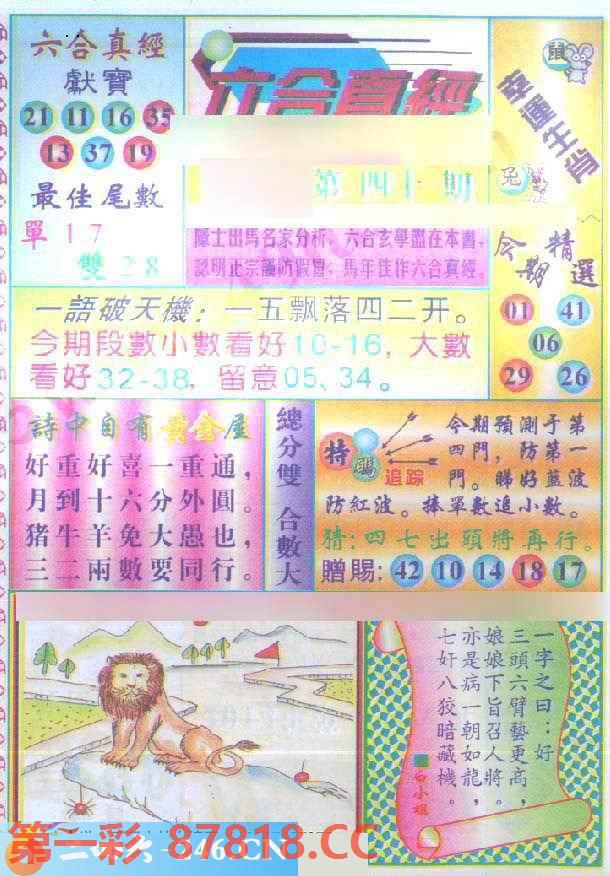 六合真經
獻寶
21 11 16 35
13 37 19
最佳尾數
單 1 7
雙 2 8
六合真經
第四十期
隱士出馬名家分析，六合玄學盡在本書，
認明正宗謹防假冒，馬年佳作六合真經。
鼠
幸運生肖
兔
今期精選
01 41
06
29 26
一語破天機：一五飘落四二开。
今期段數小數看好10-16，大數
看好32-38，留意05、34。
詩中自有黃金屋
好重好喜一重通，
月到十六分外圓。
猪牛羊兔大愚也，
三二兩數要同行。
總分雙 合數大
特碼
追踪
今期預測于第
四門，防第一
門。睇好藍波
防紅波。捧單數追小數。
猜：四七出頭將再行。
贈賜：42 10 14 18 17
一字之曰：好
三頭六臂藝更高，
娘娘下旨召人將。
亦是病一朝如龍，
七奸八狡暗藏機。
白小姐
第一彩 87818.CC
246.CN